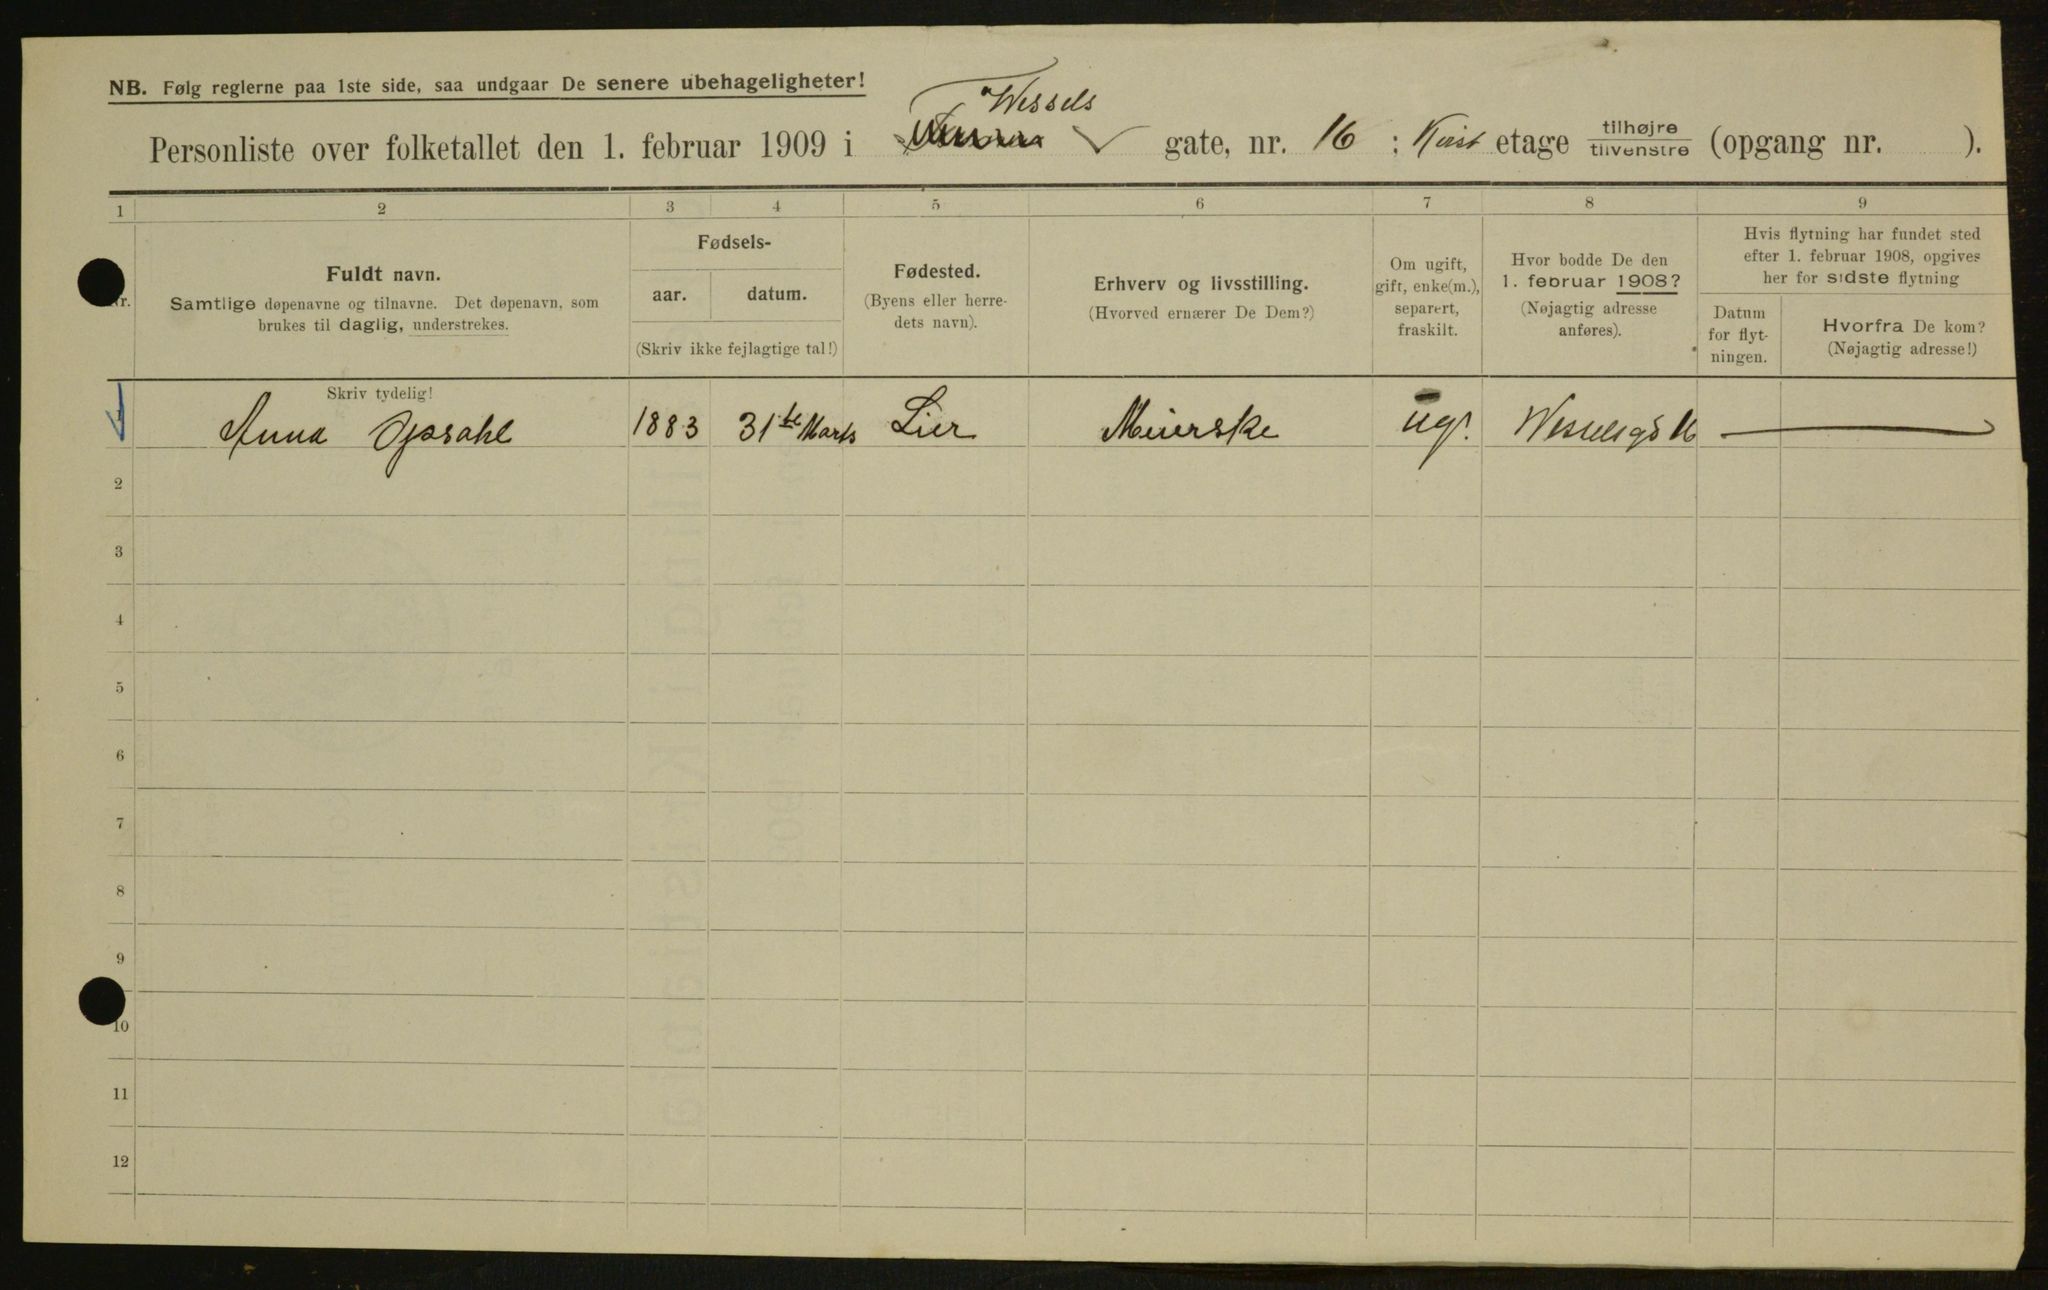 NB. Følg reglerne paa 1ste side, saa undgaar De senere ubehageligheter!
Wessels
Personliste over folketallet den 1. februar 1909 i gate, nr. 16 ; Kvist etage tilhøjre / tilvenstre (opgang nr. ).
1 2 3 4 5 6 7 8 9
Nr.
Fuldt navn.
Samtlige døpenavne og tilnavne. Det døpenavn, som
brukes til daglig, understrekes.
Fødsels-
aar. datum.
(Skriv ikke fejlagtige tal!)
Fødested.
(Byens eller herre-
dets navn).
Erhverv og livsstilling.
(Hvorved ernærer De Dem?)
Om ugift,
gift, enke(m.),
separert,
fraskilt.
Hvor bodde De den
1. februar 1908?
(Nøjagtig adresse
anføres).
Hvis flytning har fundet sted
efter 1. februar 1908, opgives
her for sidste flytning
Datum
for flyt-
ningen.
Hvorfra De kom?
(Nøjagtig adresse!)
Skriv tydelig!
1 Anna Opsahl 1883 31te Marts Lier Meierske ug. Wesselsgd 16
2
3
4
5
6
7
8
9
10
11
12